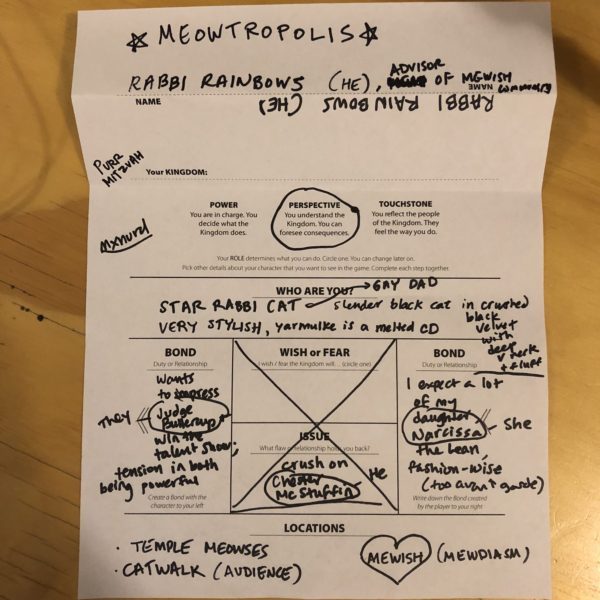 ☆ MEOWTROPOLIS ☆
RABBI RAINBOWS (HE), ADVISOR OF MEWISH
NAME
NAME
RABBI RAINBOWS (HE)
PURR
MITZVAH
Your KINGDOM:
POWER
You are in charge. You
decide what the
Kingdom does.
PERSPECTIVE
You understand the
Kingdom. You can
foresee consequences.
TOUCHSTONE
You reflect the people
of the Kingdom. They
feel the way you do.
Your ROLE determines what you can do. Circle one. You can change later on.
Pick other details about your character that you want to see in the game. Complete each step together.
WHO ARE YOU?
GAY DAD
STAR RABBI CAT
slender black cat in crushed
black
velvet
with
deep
V neck
+ fluff
VERY STYLISH, yarmulke is a melted CD
BOND
Duty or Relationship
wants
to impress
They
Judge
Buttercup
win the
talent show;
tension in both
being powerful
Create a Bond with the
character to your left
WISH or FEAR
I wish / fear the Kingdom will... (circle one)
ISSUE
What flaw or relationship holds you back?
crush on
Chester
McStuffin
He
BOND
Duty or Relationship
I expect a lot
of my
daughter
Narcissa
She
the Lean,
fashion-wise
(too avant garde)
Write down the Bond created
by the player to your right
LOCATIONS
· TEMPLE MEOWSES
· CATWALK (AUDIENCE)
MEWISH (MEWDIASM)